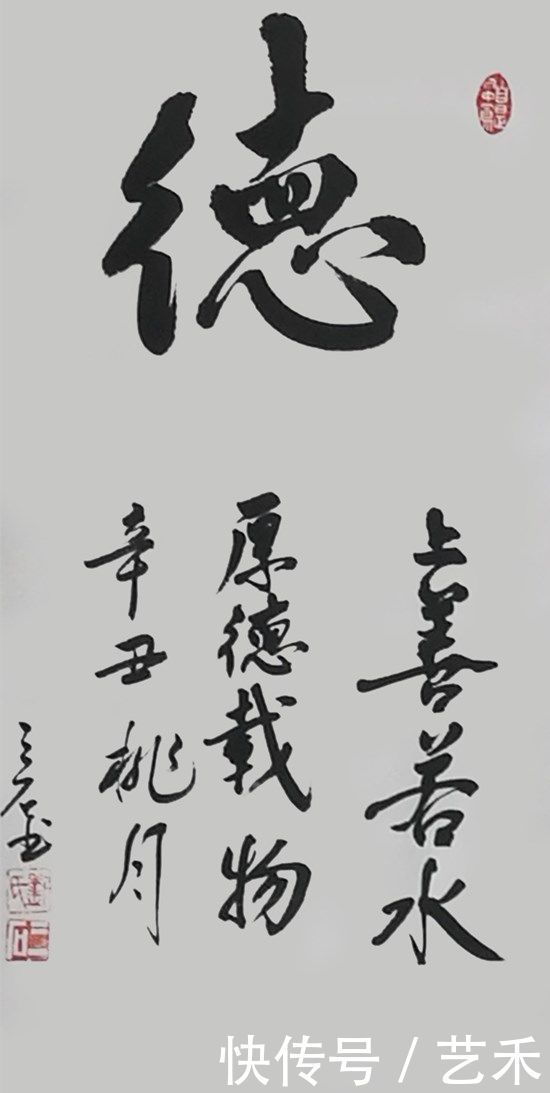 德
上善若水
厚德载物
辛丑桃月
快传号 / 艺禾